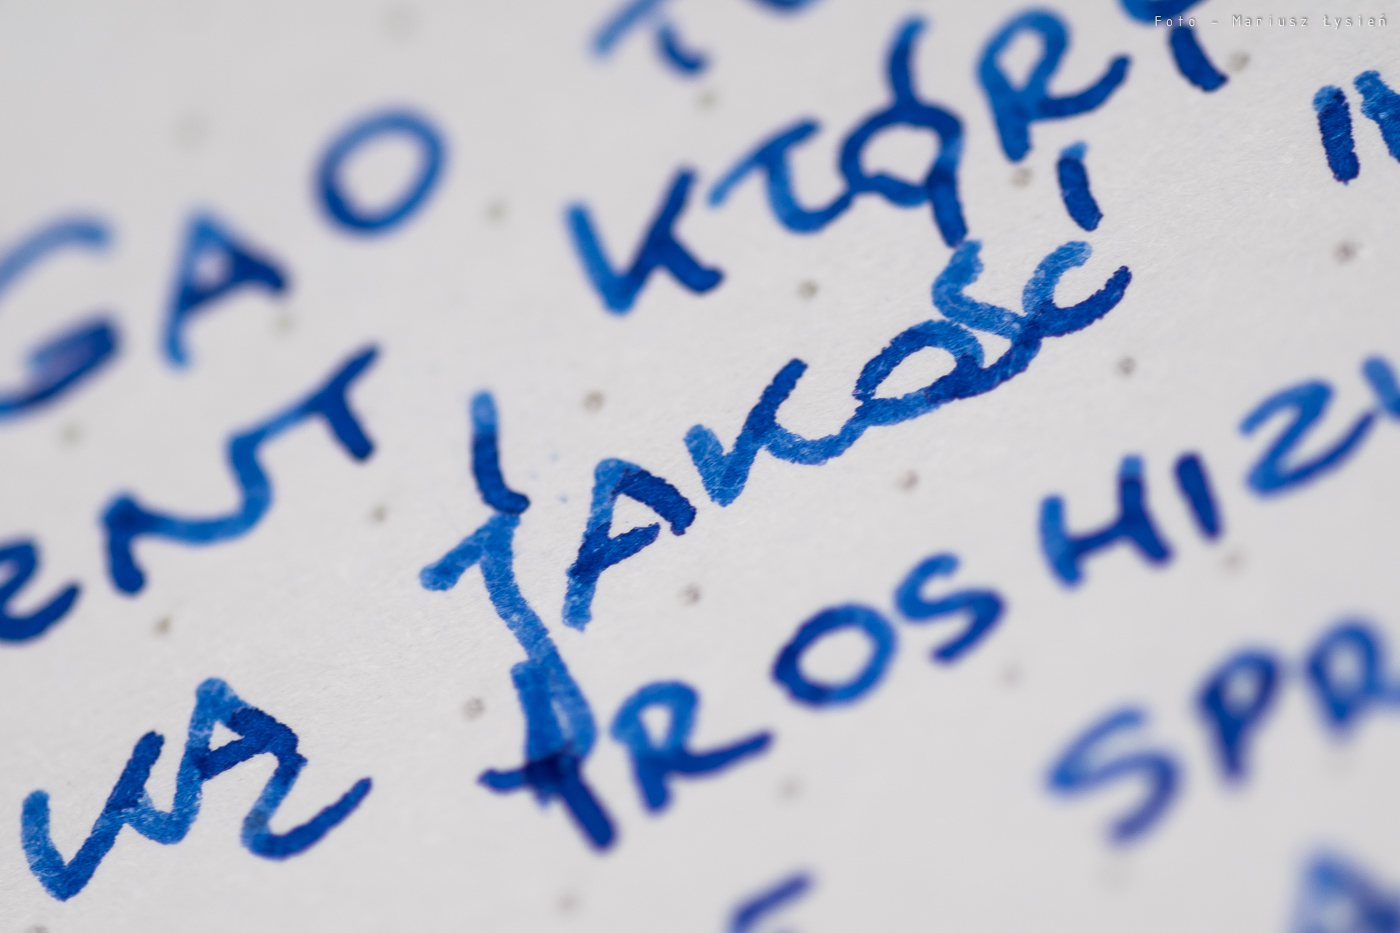 Foto - Mariusz Łysień
GAO KTÓRY
ENT JAKOŚĆ "
WAZ YROSHIZU
SPR